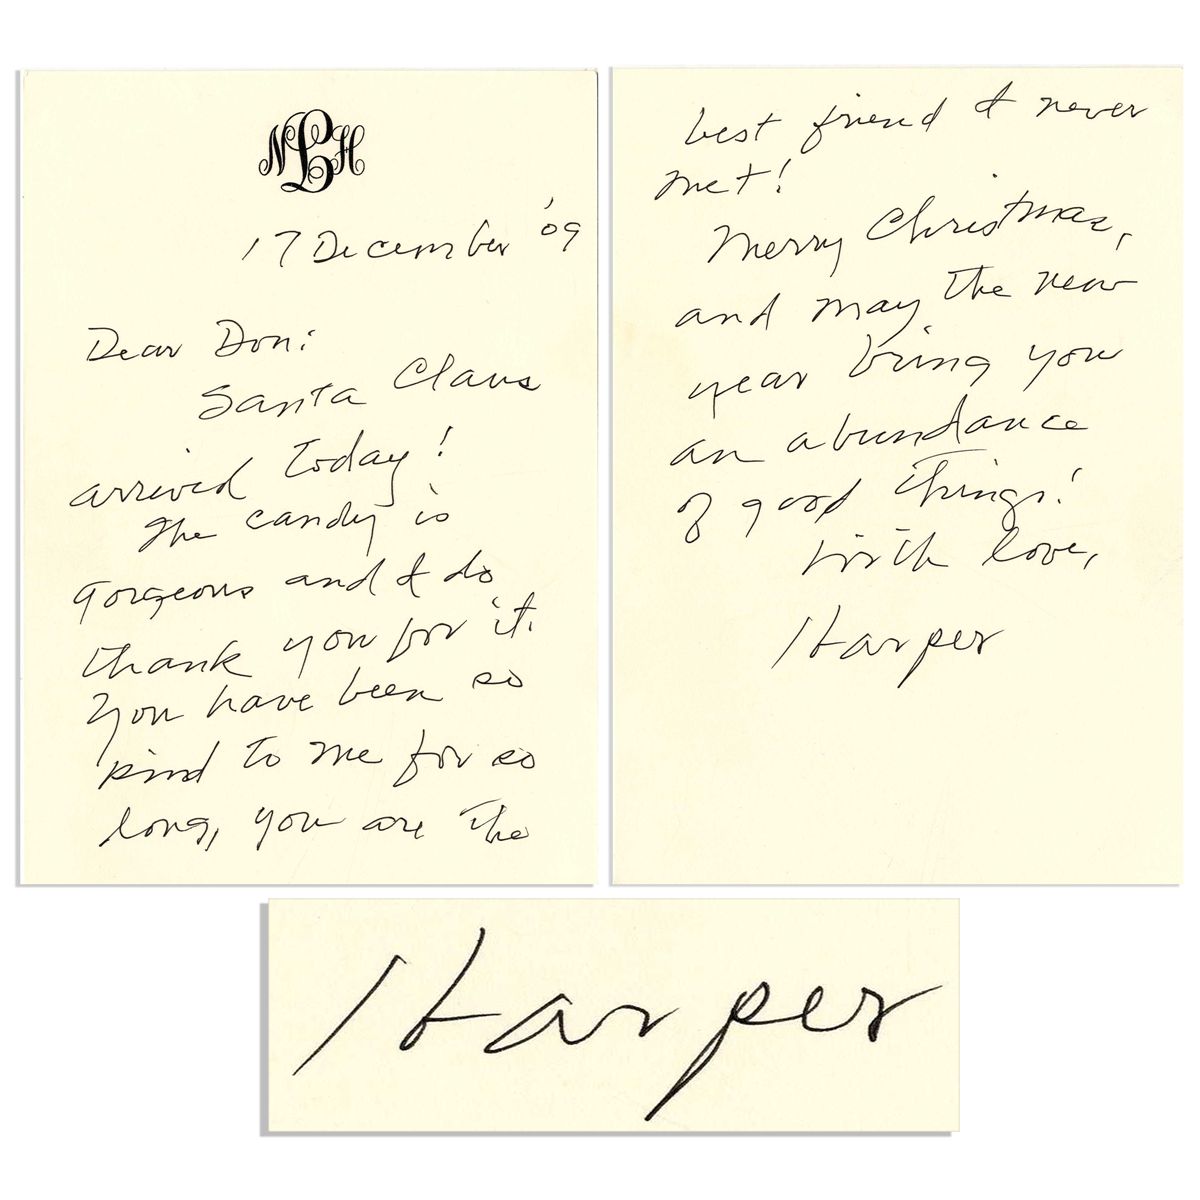 NLH
17 December '09
Dear Don:
Santa Claus
arrived today!
The candy is
gorgeous and I do
thank you for it.
You have been so
kind to me for so
long, you are the
best friend I never
met!
Merry Christmas,
and may the new
year bring you
an abundance
of good things!
With love,
Harper
Harper